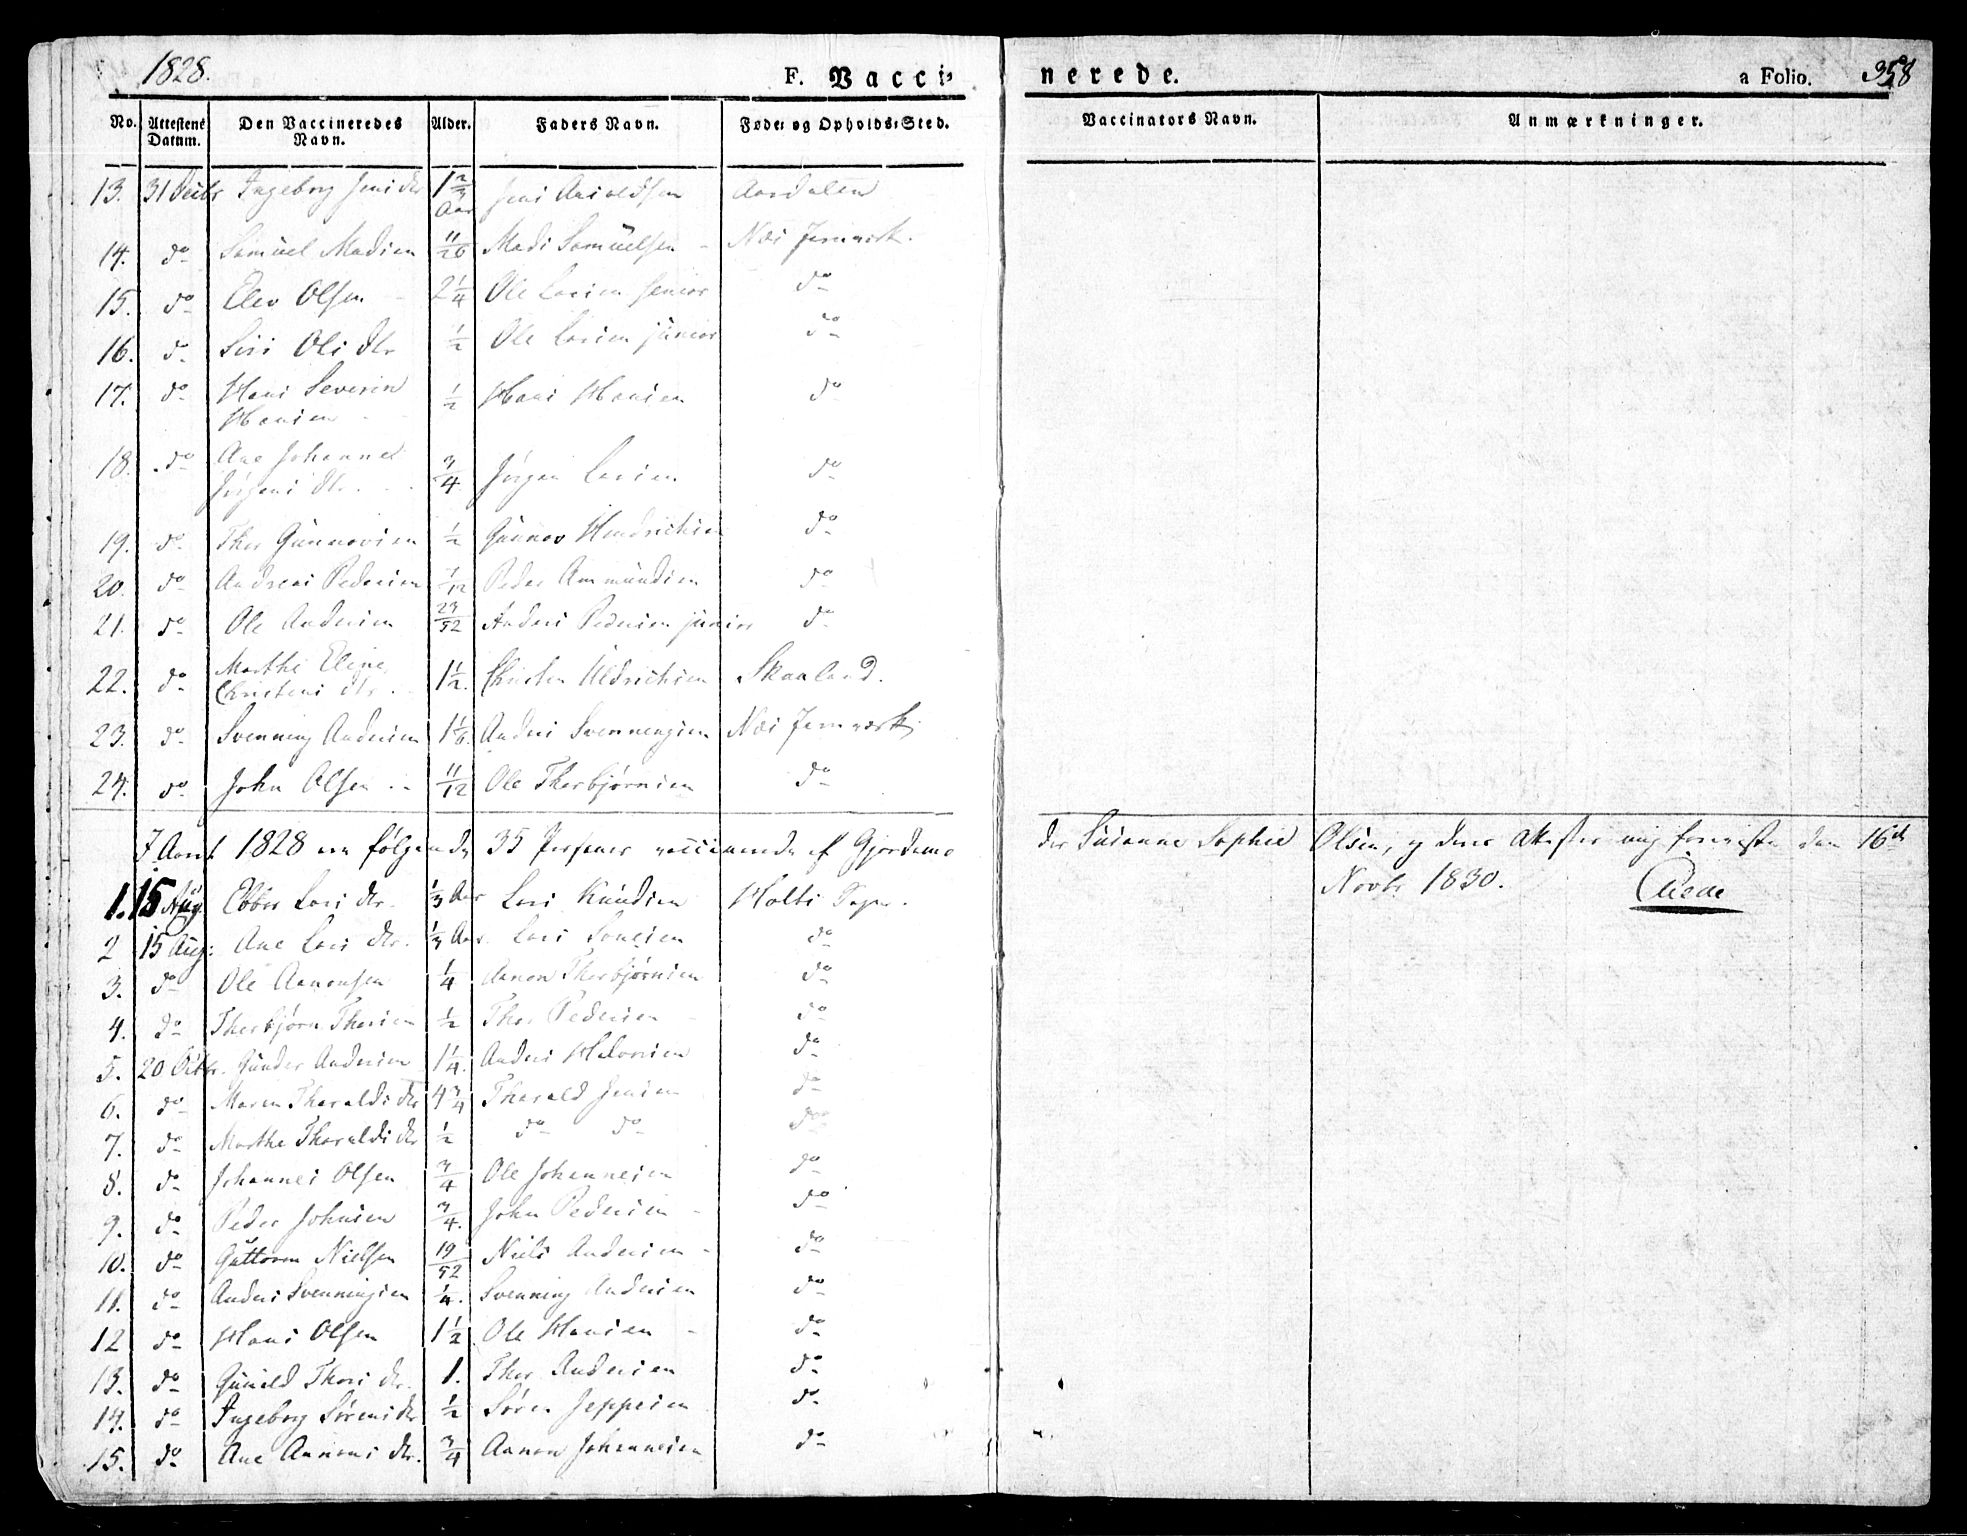 1828.
F. Vacci-
nerede.
a Folio. 358
No. Attestens Datum. Den Vaccineredes Navn. Alder. Faders Navn. Føde- og Opholds-Sted. Vaccinators Navn. Anmærkninger.
13. 31 Ingeborg Jens dtr 1 2/3 Aar Jens Aardalen
14. do Samuel Madsen 11/26 Mads Samuelsen - Næs Jernværk.
15. do Elev Olsen 2 1/4 Ole Larsen senior do
16. do Siri Ols dtr 1/2 Ole Larsen junior do
17. do Hans Severin 1/2 Hans Hansen do
Hansen
18. do Ane Johanne 3/4 Jørgen Larsen do
Jørgens dtr.
19. do Thor Gunnovsen 1/2 Gunnov Hendrichsen do
20. do Andreas Pedersen 7/12 Peder Ammundsen do
21. do Ole Andersen 23/52 Anders Pedersen junior do
22. do Marthe Eline 1 1/2. Christen Uldrichsen Skaaland.
Christens dtr.
23. do Svenning Andersen 1 1/6. Anders Svenningsen Næs Jernværk
24. do John Olsen 11/12 Ole Therbjørnsen do
I Aaret 1828 ere følgende 35 Personer vaccinerede af Gjordemo
der Susanne Sophie Olsen, og dens Attester mig foreviste den 16de
Novbr. 1830.
1. 15 Aug. Ebbor Lars dtr. 1/3 Aar Lars Knudsen Holts Sogn.
2 15 Aug: Ane Lars dtr. 1/3 Aar. Lars do
3. do Ole Aanonsen 1/4 Aanon Therbjørnsen do
4. do Therbjørn Thorsen 1/2 Thor Pedersen do
5. 20 Octbr. Gunder Andersen 1 1/4. Anders Halvorsen do
6. do Maren Tharalds dtr 4 3/4 Tharald Jensen do
7. do Marthe Tharalds dtr 1/2 do do do
8. do Johannes Olsen 3/4 Ole Johannesen do
9. do Peder Johnsen 3/4. John Pedersen do
10. do Guttorm Nielsen 19/52 Niels Andersen do
11. do Anders Svenningsen 1/4. Svenning Andersen do
12 do Hans Olsen 1 1/2 Ole Hansen do
13. do Gunild Thors dtr. 1. Thor Andersen do
14. do Ingeborg Sørens dtr 1/2 Søren Jeppesen do
15. do Ane Aanons dtr. 3/4 Aanon Johannesen do